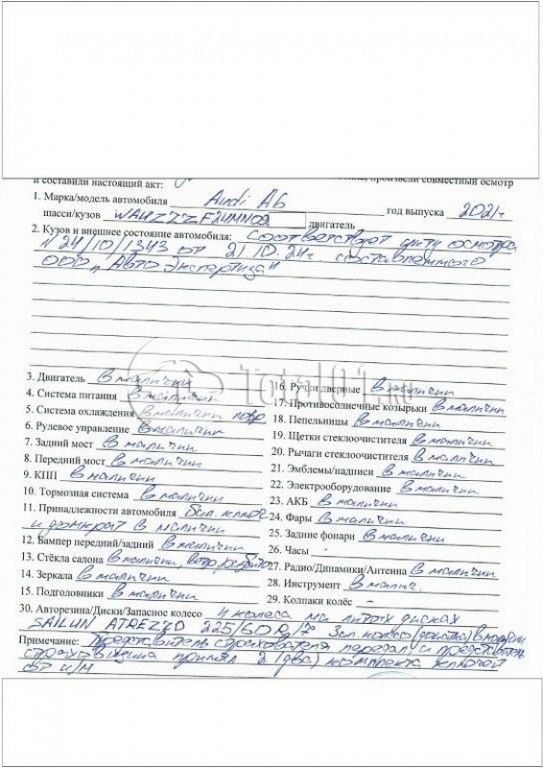 и составили настоящий акт: произвели совместный осмотр
1. Марка/модель автомобиля Audi A6 год выпуска 2021г
шасси/кузов WAUZZZF24MN09 двигатель
2. Кузов и внешнее состояние автомобиля: Соответствует акту осмотра
№ 24/10/1343 от 21.10.24г. составленного
ООО "АвтоЭкспертиза"
Total01.ru
3. Двигатель в наличии
4. Система питания в наличии
5. Система охлаждения в наличии повр
6. Рулевое управление в наличии
7. Задний мост в наличии
8. Передний мост в наличии
9. КПП в наличии
10. Тормозная система в наличии
11. Принадлежности автомобиля бал. ключ
и домкрат в наличии
12. Бампер передний/задний в наличии
13. Стёкла салона в наличии,
14. Зеркала в наличии
15. Подголовники в наличии
16. Ручки дверные в наличии
17. Противосолнечные козырьки в наличии
18. Пепельницы в наличии
19. Щетки стеклоочистителя в наличии
20. Рычаги стеклоочистителя в наличии
21. Эмблемы/надписи в наличии
22. Электрооборудование в наличии
23. АКБ в наличии
24. Фары в наличии
25. Задние фонари в наличии
26. Часы -
27. Радио/Динамики/Антенна в наличии
28. Инструмент в налич.
29. Колпаки колёс -
30. Авторезина/Диски/Запасное колесо 4 колеса на литых дисках
SAILUN ATREZZO 225/60 R17 Зап колесо (докатка) в наличии
Примечание: Представитель страхователя передал, а представитель
страховщика принял 2 (два) комплекта ключей
от и/м